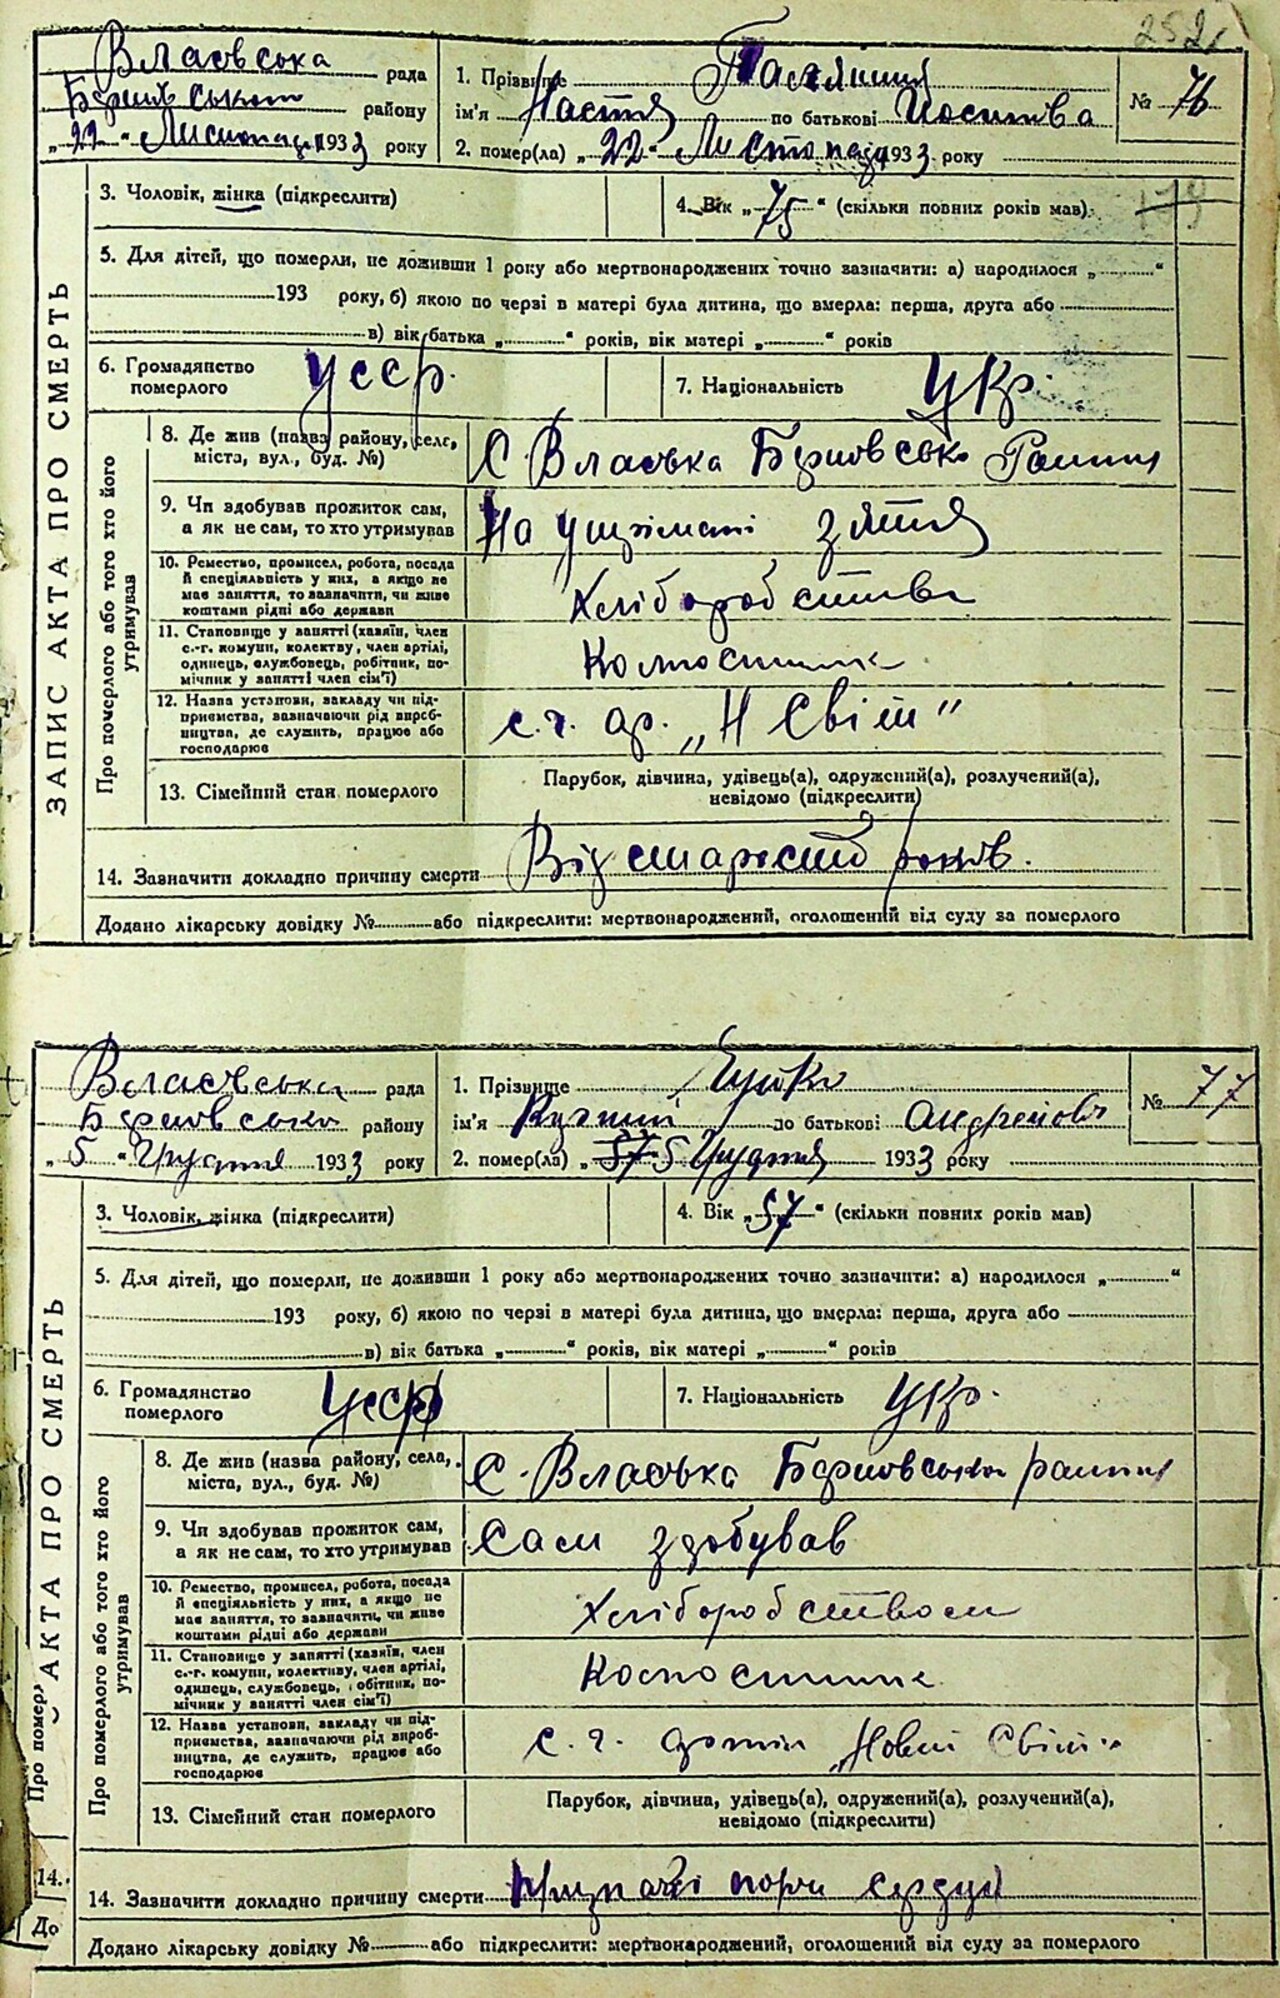 252
Власвська рада
району
"22" Листопада 1933 року
1. Прізвище
ім'я Настя по батькові
2. помер(ла) "22" Листопада 1933 року
№ 76
3. Чоловік, жінка (підкреслити)
4. Вік "75" (скільки повних років мав)
179
5. Для дітей, що померли, не доживши 1 року або мертвонароджених точно зазначити: а) народилося „ “
193 року, б) якою по черзі в матері була дитина, що вмерла: перша, друга або
в) вік батька „ “ років, вік матері „ “ років
6. Громадянство
померлого
УССР.
7. Національність Укр.
ЗАПИС АКТА ПРО СМЕРТЬ
Про померлого або того хто його
утримував
8. Де жив (назва району, села,
міста, вул., буд. №)
С. Власвка
9. Чи здобував прожиток сам,
а як не сам, то хто утримував
На утрімані зятя
10. Ремество, промисел, робота, посада
й спеціяльність у них, а якщо не
має заняття, то зазначити, чи живе
коштами рідні або держави
Хліборобство
11. Становище у занятті (хазяїн, член
с.-г. комуни, колективу, член артілі,
одинець, службовець, робітник, по-
мічник у занятті член сім'ї)
12. Назва установи, закладу чи під-
приємства, зазначаючи рід вироб-
ництва, де служить, працює або
господарює
с. г. ар. „Н Світ"
13. Сімейний стан померлого
Парубок, дівчина, удівець(а), одружений(а), розлучений(а),
невідомо (підкреслити)
14. Зазначити докладно причину смерти Від старости років.
Додано лікарську довідку № або підкреслити: мертвонароджений, оголошений від суду за померлого
Власвська рада
району
"5" Грудня 1933 року
1. Прізвище
ім'я по батькові
2. помер(ла) " 57 5 Грудня 1933 року
№ 77
3. Чоловік, жінка (підкреслити)
4. Вік „57“ (скільки повних років мав)
5. Для дітей, що померли, не доживши 1 року або мертвонароджених точно зазначити: а) народилося „ “
193 року, б) якою по черзі в матері була дитина, що вмерла: перша, друга або
в) вік батька „ “ років, вік матері „ “ років
6. Громадянство
померлого
УССР
7. Національність Укр.
АКТА ПРО СМЕРТЬ
Про померлого або того хто його
утримував
8. Де жив (назва району, села,
міста, вул., буд. №)
С. Власвка
9. Чи здобував прожиток сам,
а як не сам, то хто утримував
Сам здобував
10. Ремество, промисел, робота, посада
й спеціяльність у них, а якщо не
має заняття, то зазначити, чи живе
коштами рідні або держави
Хліборобством
11. Становище у занятті (хазяїн, член
с.-г. комуни, колективу, член артілі,
одинець, службовець, робітник, по-
мічник у занятті член сім'ї)
12. Назва установи, закладу чи під-
приємства, зазначаючи рід вироб-
ництва, де служить, працює або
господарює
с. г. „Новий Світ"
13. Сімейний стан померлого
Парубок, дівчина, удівець(а), одружений(а), розлучений(а),
невідомо (підкреслити)
14. Зазначити докладно причину смерти
Додано лікарську довідку № або підкреслити: мертвонароджений, оголошений від суду за померлого
Про помер
14.
До